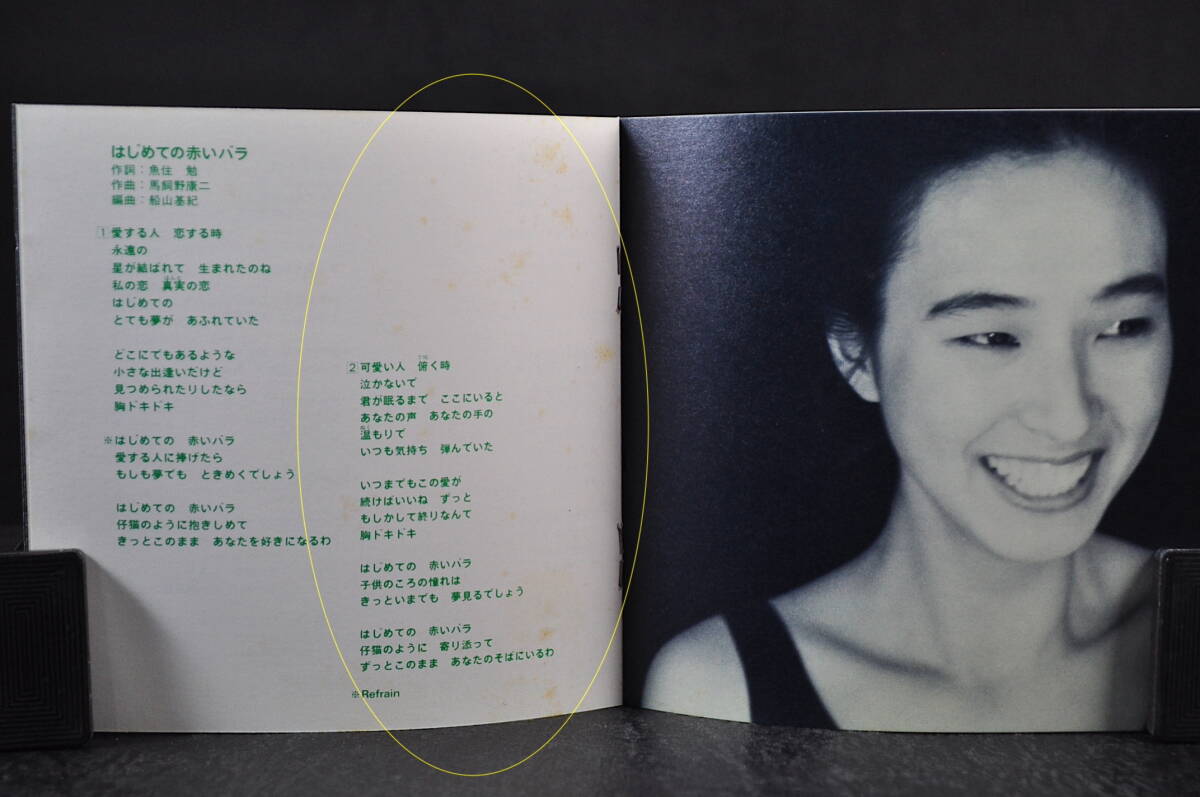 はじめての赤いバラ
作詞：魚住　勉
作曲：馬飼野康二
編曲：船山基紀
1 愛する人　恋する時
永遠の
星が結ばれて　生まれたのね
私の恋　真実の恋
はじめての
とても夢が　あふれていた
どこにでもあるような
小さな出逢いだけど
見つめられたりしたなら
胸ドキドキ
※はじめての　赤いバラ
愛する人に捧げたら
もしも夢でも　ときめくでしょう
はじめての　赤いバラ
仔猫のように抱きしめて
きっとこのまま　あなたを好きになるわ
2 可愛い人　俯く時
泣かないで
君が眠るまで　ここにいると
あなたの声　あなたの手の
温もりで
いつも気持ち　弾んでいた
いつまでもこの愛が
続けばいいね　ずっと
もしかして終りなんて
胸ドキドキ
はじめての　赤いバラ
子供のころの憧れは
きっといまでも　夢見るでしょう
はじめての　赤いバラ
仔猫のように　寄り添って
ずっとこのまま　あなたのそばにいるわ
※Refrain